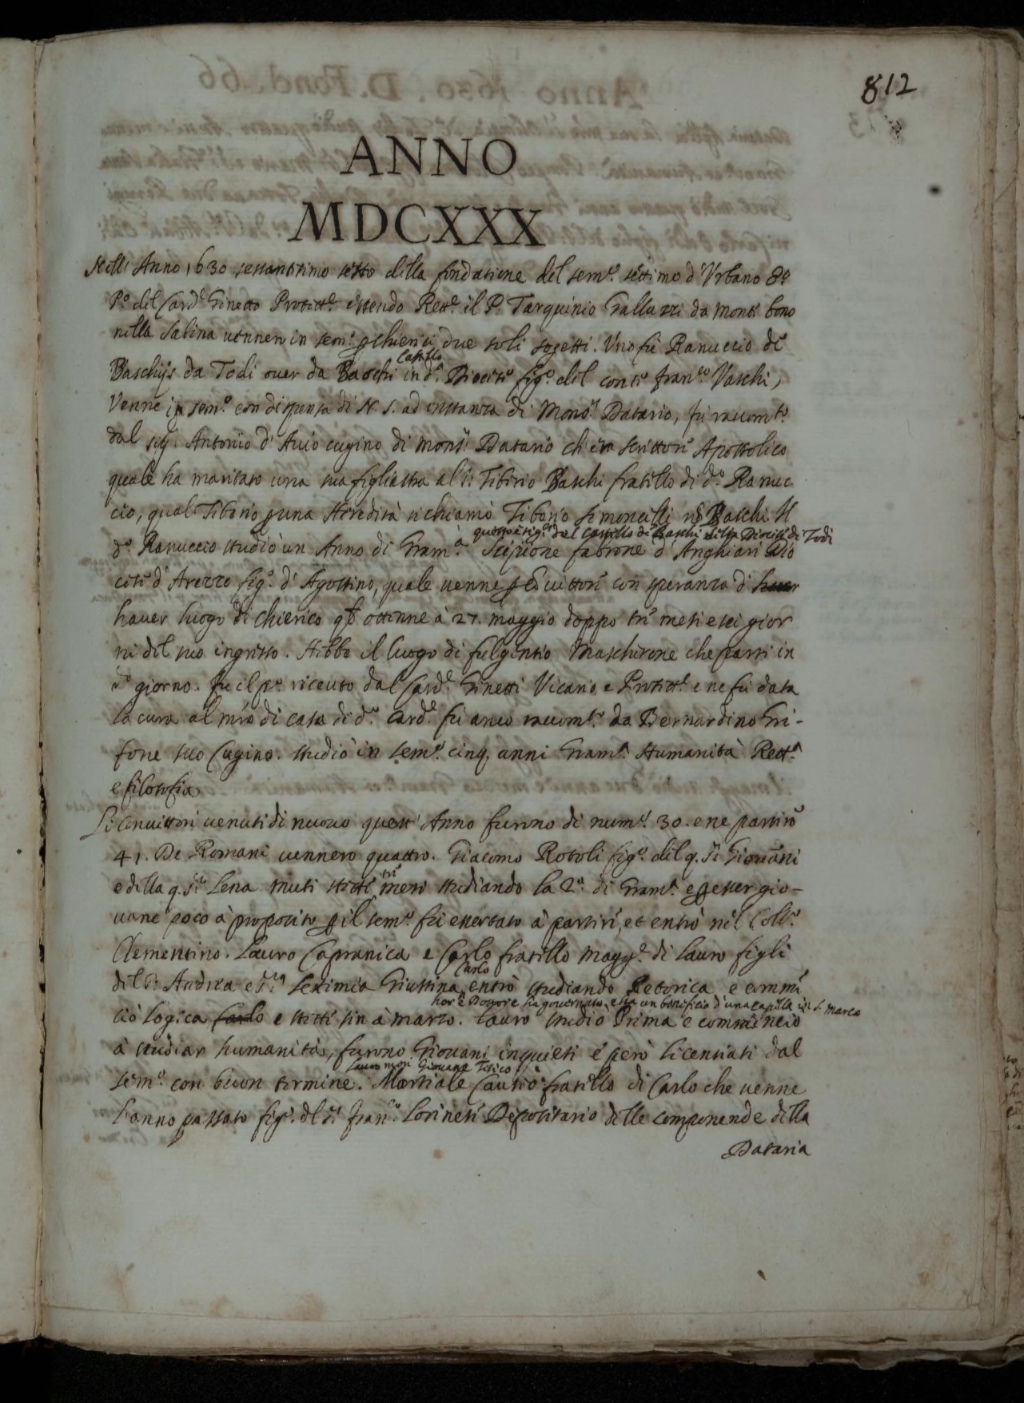 812
ANNO
MDCXXX
Nell' Anno 1630 sessantesimo sesto della fondatione del sem.º settimo d'Urbano 8º
P.º del Card.l Ginetto Protett.e essendo Rett.e il P. Tarquinio Galluzzi da Monte bono
nella Sabina vennero in sem.º chierici due soli sogetti. Uno fu Ranuccio de
Castello
Baschijs da Todi over da Baschi in d.ª Diocesi fig.º del conte Fran.co Baschi,
Venne in sem.º con dispensa di N. S. ad instanza di Mons.r Datario, fu racom.to
dal sig. Antonio d' cugino di mons.r Datario ch'era scrittore Apostolico
quale ha maritato una sua figliastra al s.r Tiberio Baschi fratello di d.º Ranuc
cio, qual Tiberio p una Heredità si chiamò Tiberio Simoncelli nō Baschi. Il
questo è sig.re del Castello di Baschi della Diocesi di Todi
d.º Ranuccio studiò un Anno di Gram.ª Scipione fabrone d'Anghiari Dio
cesi d'Arezzo fig.º d'Agostino, quale venne p Convittore con speranza d' haver
haver luogo di chierico qł ottenne à 27. maggio doppo tre mesi e sei gior
ni del suo ingresso. Hebbe il luogo di fulgentio Mascherone che partì in
d.º giorno. fu il p.º ricevuto dal Card.l Ginetti Vicario e Protett.e e ne fu data
la cura al mro di casa di d.º Card.l fu anco racom.to da Bernardino Gri-
fone suo Cugino. studiò in sem.º cinq. anni Gram.ª Humanità Rett.ª
e filosofia.
Li Convittori venuti di nuovo quest' Anno furono di num.º 30. e ne partirō
41. De Romani vennero quattro. Giacomo Rotoli fig.º del q. S.r Giovanni
e della q. S.ra Lena Muti stette tre mesi studiando la 2.ª di Gram.ª e p esser gio-
vane poco à proposito p il sem.º fu essortato à partire, et entrò nel Coll.º
Clementino. Lauro Capranica e Carlo fratello magg.e di Lauro figli
Carlo
del S.r Andrea e S.ra Giustina entrò studiando Retorica e comin
hor è Dottore ha governato, e ha un beneficio d'una capella in S. Marco
ciò logica Carlo e stette sin à marzo. Lauro studiò Prima e cominciò
à studiar humanità, furono Giovani inquieti e però licentiati dal
Lauro morì Giovane Tisico
sem.º con buon termine. Martiale fratello di Carlo che venne
l'anno passato fig.º del S.r Fran.co Lorineri Depositario delle componende della
Dataria